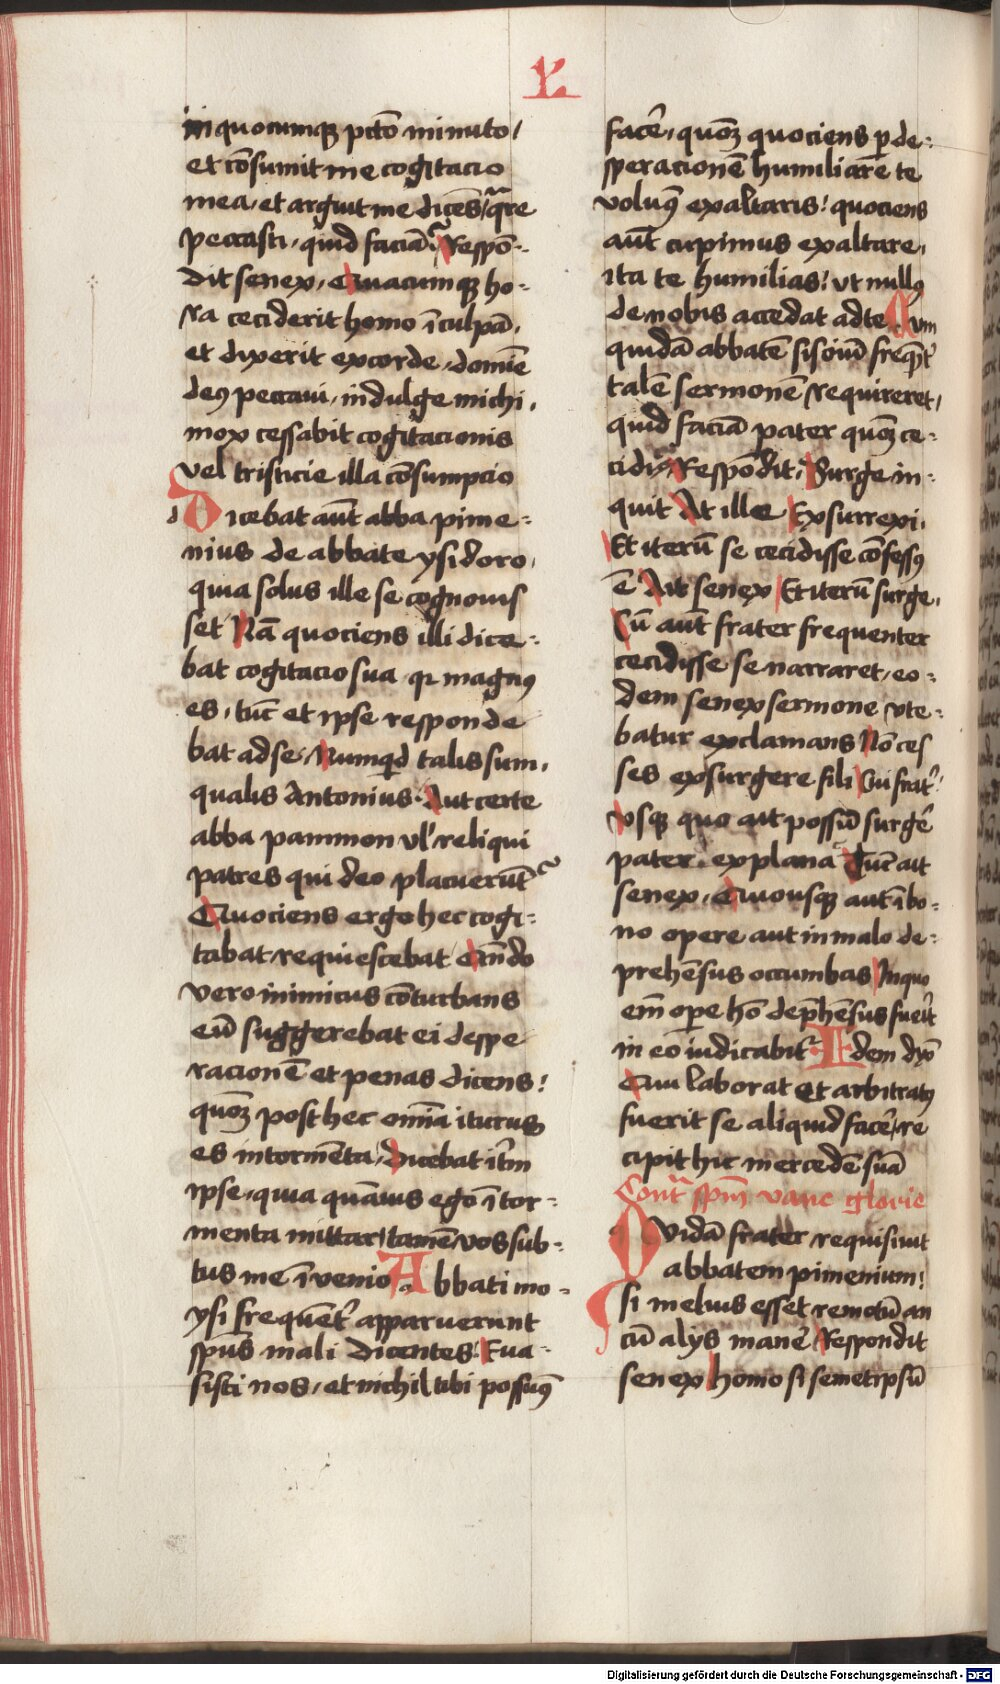 in quocumq; pctō minuto /
et cōsumit me cogitacio
mea, et arguit me dicēs / qͣre
peccasti, quid faciā? Respō-
dit senex, Quacumq; ho-
ra ceciderit homo ī culpā,
et dixerit ex corde, domīe
deꝰ peccaui, indulge michi,
mox cessabit cogitacionis
vel tristicie illa cōsumpcio
Dicebat aūt abba pime-
nius de abbate ysidoro,
quia solus ille se cognouis
set Nā quociens illi dice-
bat cogitacio sua qꝛ magnꝰ
es, tūc et ipse responde
bat ad se, Numqͥd talis sum,
qualis Antonius. Aut certe
abba pammon vl' reliqui
patres qui deo placuerūt?
Quociens ergo hec cogi-
tabat requiescebat Qn̄do
vero inimicus cōturbans
eū suggerebat ei despe
racionē et penas dicens!
quom̄ post hec om̄ia iturus
es in tormēta, Dicebat itm̄
ipse, quia quāuis ego ī tor-
menta mittar, tamē vos sub-
tus me īvenio Abbati mo-
ysi frequēt' apparuerunt
spūs mali dicentes! Eua-
sisti nos, et nichil tibi possumꝰ
facē, quom̄ quociens p de-
speracionē humiliare te
volumꝰ exaltaris! quociens
aūt cupimus exaltare,
ita te humilias! vt nullꝰ
de nobis accedat ad te Cum
quidā abbatē sisoiū freqn̄t'
talē sermonē requireret,
quid faciā pater quom̄ ce-
cidi? Respōdit, Surge in-
quit At ille Exsurrexi,
Et iterū se cecidisse cōfessꝰ
ē Ait senex Et iterū surge,
Cū aūt frater frequenter
cecidisse se narraret, eo-
dem senex sermone vte-
batur exclamans Nō ces
ses exsurgere fili Cui frat'
vsq; quo ait possū surgē
pater explana Tūc ait
senex, Quousq; aut ī bo-
no opere aut in malo de-
prehēsus occumbas In quo
em̄ ope hō dephēsus fuerit
in eo iudicabit' Idem dix̄
Qui laborat et arbitratꝰ
fuerit se aliquid facē, re
cipit hic mercedē suā
Contͣ spm̄ vane glorie
Quidā frater requisiuit
abbatem pimenium!
si melius esset remotū an
cū alijs manē Respondit
senex homo si semetipsū
Digitalisierung gefördert durch die Deutsche Forschungsgemeinschaft - DFG